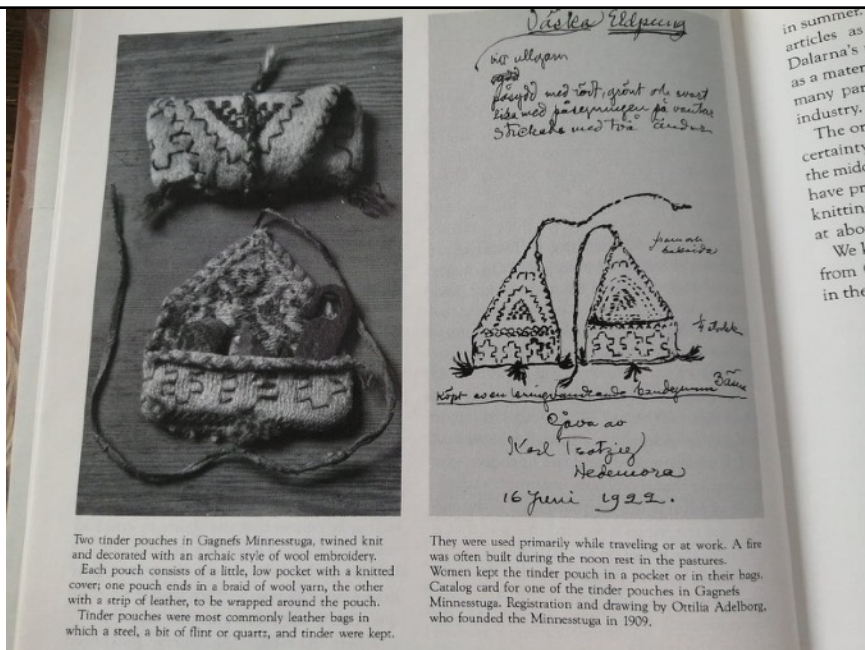 Väska Eldpung
vitt ullgarn
påsydd med rött, grönt och svart
lika med påsyningen på vantar
stickade med två ändar
fram och
baksida
Köpt av en kringvandrande
Gåva av
Karl Trotzig
Hedemora
16 Juni 1922.
Two tinder pouches in Gagnefs Minnesstuga, twined knit
and decorated with an archaic style of wool embroidery.
Each pouch consists of a little, low pocket with a knitted
cover; one pouch ends in a braid of wool yarn, the other
with a strip of leather, to be wrapped around the pouch.
Tinder pouches were most commonly leather bags in
which a steel, a bit of flint or quartz, and tinder were kept.
They were used primarily while traveling or at work. A fire
was often built during the noon rest in the pastures.
Women kept the tinder pouch in a pocket or in their bags.
Catalog card for one of the tinder pouches in Gagnefs
Minnesstuga. Registration and drawing by Ottilia Adelborg,
who founded the Minnesstuga in 1909.
in summer.
articles as
Dalarna's
as a mater
many par
industry.
The or
certainty
the midd
have pr
knitting
at abo
We k
from
in the